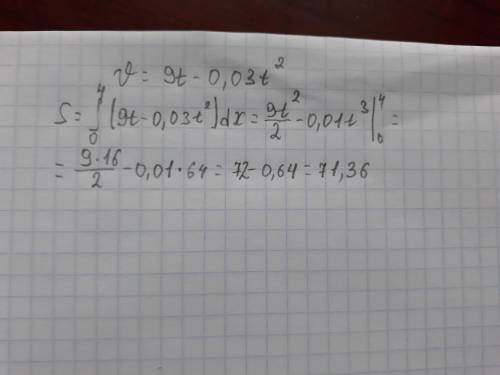 v = 9t - 0,03t²
S = ∫₀⁴ (9t - 0,03t²)dx = 9t²/2 - 0,01t³|₀⁴ =
= 9·16/2 - 0,01·64 = 72 - 0,64 = 71,36